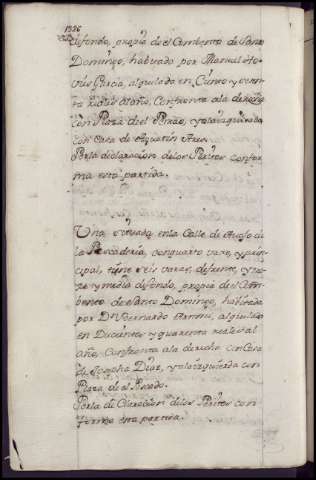 1336
de fondo, propia de el Combento de Santo
Domingo, habitado por Manuel
Garcia, alquilado en Ciento y
reales al año, Confronta a la derecha
con Plaza de el Pescado, y a la izquierda
con Casa de Agustin
Por la declaracion de los Peritos confor
ma esta partida.
Una en la Calle de
la Pescaderia, con quarto vajo, y prin
cipal, tiene seis varas, de frente, y
y media de fondo, propia de el Com
bento de Santo Domingo, habitada
por Dn Bernardo alquilada
en Ducientos y quarenta reales al
año, Confronta a la derecha con Casa
de Josepha Diaz, y a la izquierda con
Plaza de el Pescado.
Por la Declaracion de los Peritos con
forma esta partida.